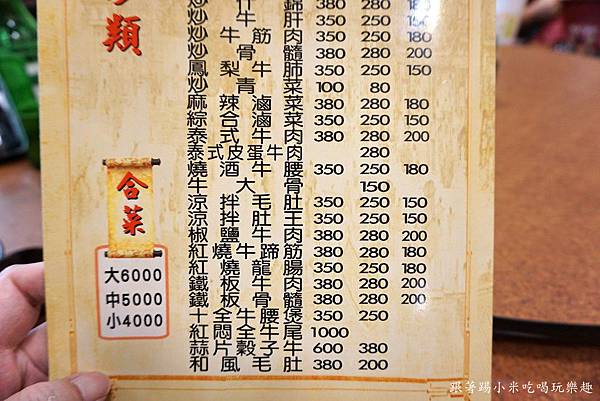 炒類
炒什錦 380 280 180
炒牛肝 350 250 150
炒牛筋肉 350 250 180
炒骨髓 380 280 200
鳳梨牛肺 350 250 150
炒青菜 100 80
麻辣滷菜 380 280 180
綜合滷菜 350 250 150
泰式牛肉 380 280 200
泰式皮蛋牛肉 280
燒酒牛腰 350 250 180
牛大骨 150
涼拌毛肚 350 250 150
涼拌肚王 350 250 150
椒鹽牛肉 380 280 200
紅燒牛蹄筋 380 280 180
紅燒龍腸 350 250 180
鐵板牛肉 380 280 200
鐵板骨髓 380 280 200
十全牛腰煲 350 250
紅悶全牛尾 1000
蒜片穀子牛 600 380
和風毛肚 380 200
合菜
大6000
中5000
小4000
跟著踢小米吃喝玩樂趣